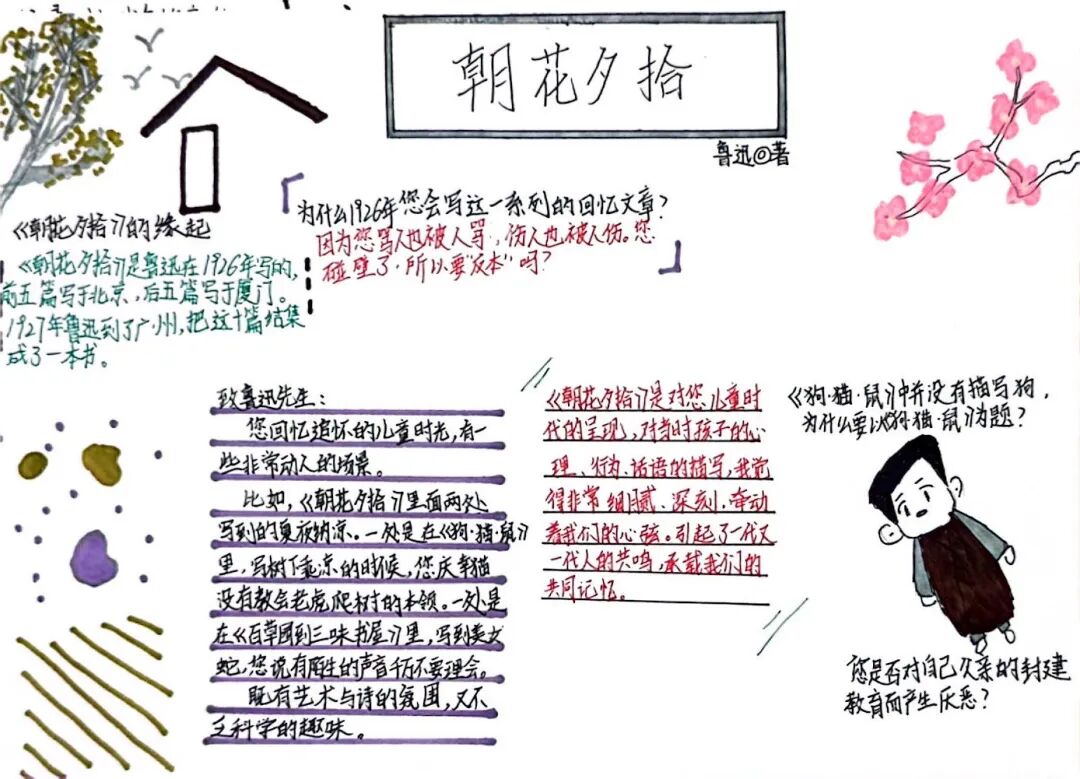 朝花夕拾
鲁迅◎著
为什么1926年您会写这一系列的回忆文章?
因为您骂人也被人骂,伤人也被人伤。您
碰壁了,所以要“反本”吗?
《朝花夕拾》的缘起
《朝花夕拾》是鲁迅在1926年写的,
前五篇写于北京,后五篇写于厦门。
1927年鲁迅到了广州,把这十篇结集
成了一本书。
致鲁迅先生:
您回忆追怀的儿童时光,有一
些非常动人的场景。
比如,《朝花夕拾》里面两处
写到的夏夜纳凉。一处是在《狗·猫·鼠》
里,写树下乘凉的时候,您庆幸猫
没有教会老虎爬树的本领。一处是
在《百草园到三味书屋》里,写到美女
蛇,您说有陌生的声音千万不要理会。
既有艺术与诗的氛围,又不
乏科学的趣味。
《朝花夕拾》是对您儿童时
代的呈现,对当时孩子的心
理、行为、话语的描写,我觉
得非常细腻、深刻,牵动
着我们的心弦。引起了一代又
一代人的共鸣,承载我们的
共同记忆。
《狗·猫·鼠》中并没有描写狗,
为什么要以《狗·猫·鼠》为题?
您是否对自己父亲的封建
教育而产生厌恶?